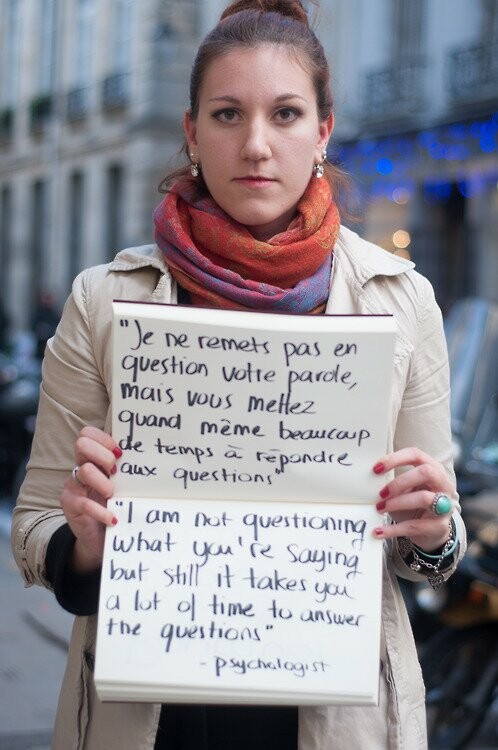 "Je ne remets pas en
question votre parole,
mais vous mettez
quand même beaucoup
de temps à répondre
aux questions"
"I am not questioning
what you're saying
but still it takes you
a lot of time to answer
the questions"
- psychologist